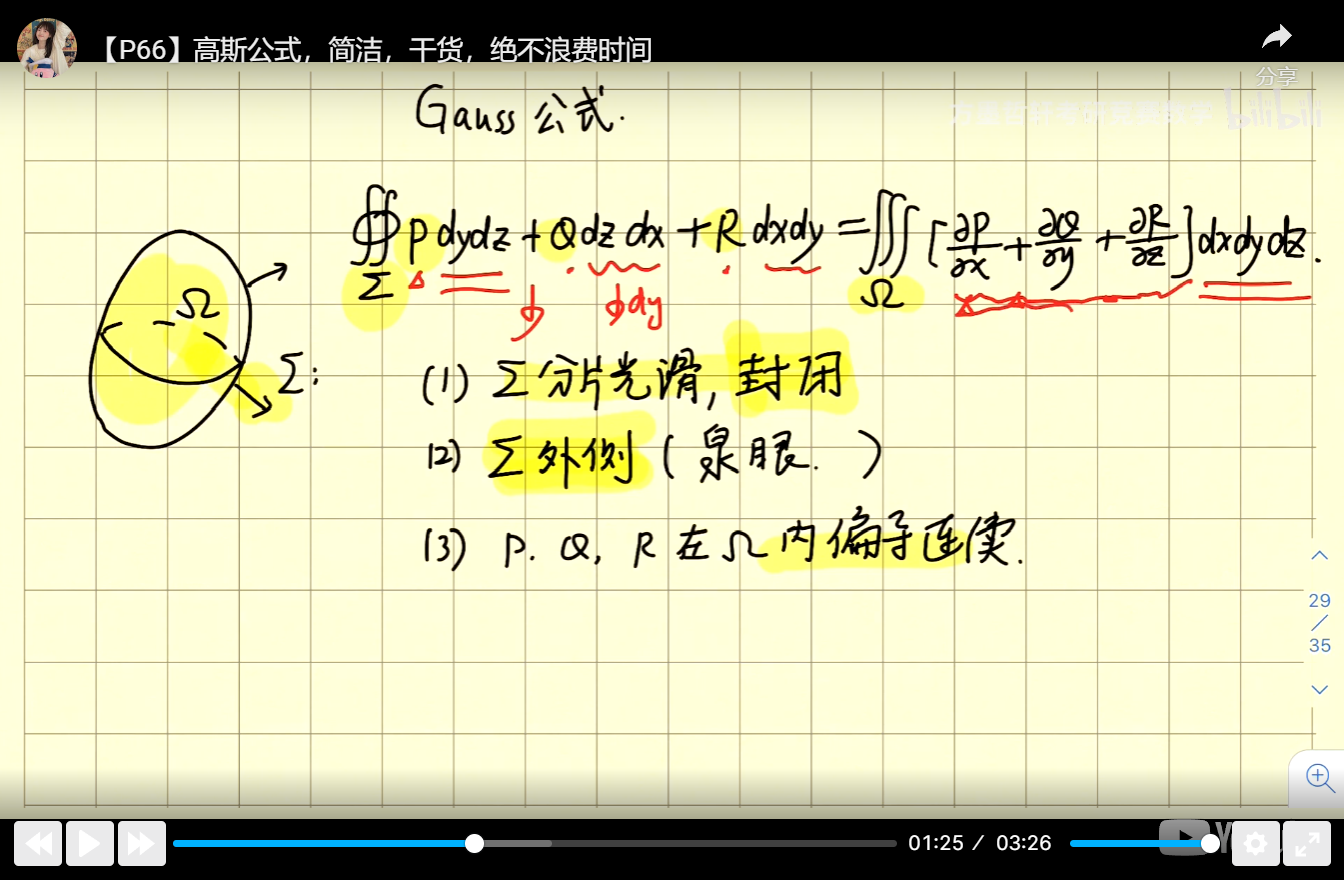 【P66】高斯公式，简洁，干货，绝不浪费时间
分享
bilibili
Gauss 公式.
∯ Pdydz + Qdzdx + Rdxdy = ∭ [∂P/∂x + ∂Q/∂y + ∂R/∂z] dxdydz.
Σ
Ω
ϕ ϕdy
Ω
Σ:
(1) Σ分片光滑, 封闭
(2) Σ外侧 (泉眼. )
(3) P. Q, R 在Ω内偏导连续.
29
/
35
01:25 / 03:26